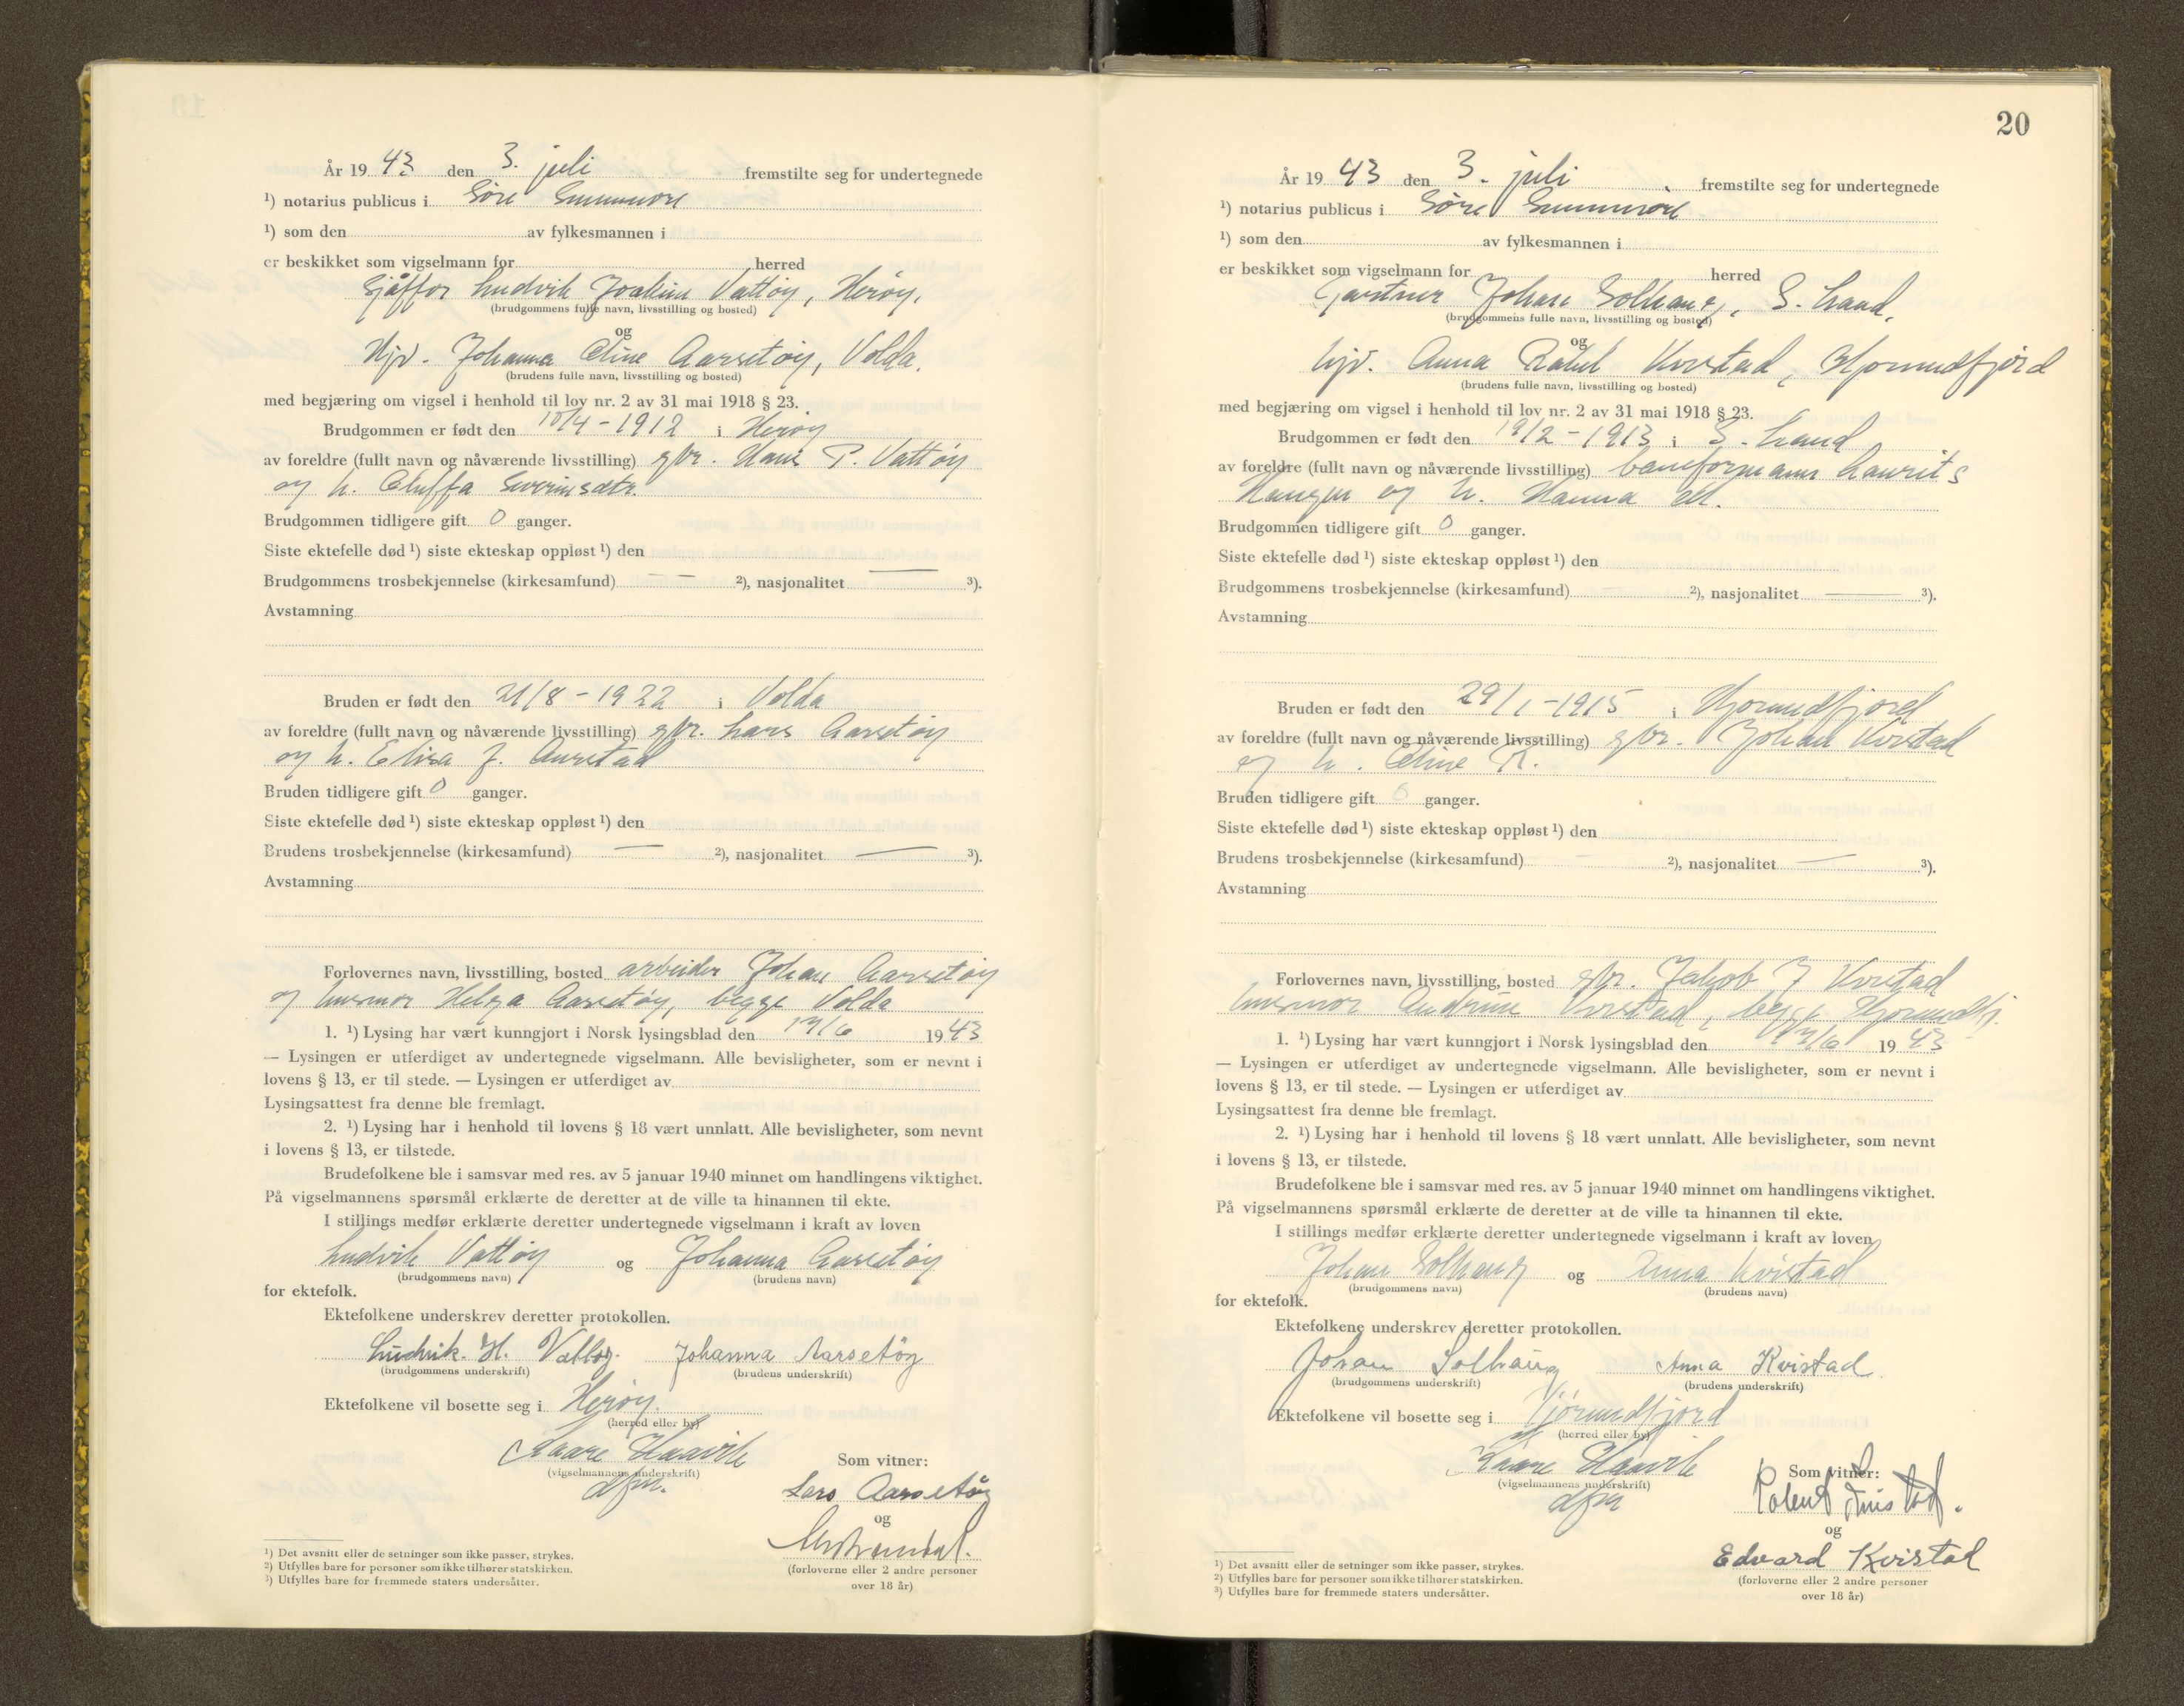 År 19 43 den 3. juli fremstilte seg for undertegnede
¹) notarius publicus i Søre Sunnmøre
¹) som den av fylkesmannen i
er beskikket som vigselmann for herred
Sjåffør Ludvik Joakim Vattøy, Herøy,
(brudgommens fulle navn, livsstilling og bosted)
og
Hjv. Johanna Oline Aarsetøy, Volda.
(brudens fulle navn, livsstilling og bosted)
med begjæring om vigsel i henhold til lov nr. 2 av 31 mai 1918 § 23.
Brudgommen er født den 10/4 - 1912 i Herøy
av foreldre (fullt navn og nåværende livsstilling) gbr. Hans P. Vattøy
og h. Oluffa Severinsdtr.
Brudgommen tidligere gift 0 ganger.
Siste ektefelle død ¹) siste ekteskap oppløst ¹) den
Brudgommens trosbekjennelse (kirkesamfund) — ²), nasjonalitet — ³).
Avstamning
Bruden er født den 21/8 - 1922 i Volda
av foreldre (fullt navn og nåværende livsstilling) gbr. Lars Aarsetøy
og h. Elisa J. Aurstad
Bruden tidligere gift 0 ganger.
Siste ektefelle død ¹) siste ekteskap oppløst ¹) den
Brudens trosbekjennelse (kirkesamfund) — ²), nasjonalitet — ³).
Avstamning
Forlovernes navn, livsstilling, bosted arbeider Johan Aarsetøy
og husmor Helga Aarsetøy, begge Volda
1. ¹) Lysing har vært kunngjort i Norsk lysingsblad den 17/6 19 43
— Lysingen er utferdiget av undertegnede vigselmann. Alle bevisligheter, som er nevnt i
lovens § 13, er til stede. — Lysingen er utferdiget av
Lysingsattest fra denne ble fremlagt.
2. ¹) Lysing har i henhold til lovens § 18 vært unnlatt. Alle bevisligheter, som nevnt
i lovens § 13, er tilstede.
Brudefolkene ble i samsvar med res. av 5 januar 1940 minnet om handlingens viktighet.
På vigselmannens spørsmål erklærte de deretter at de ville ta hinannen til ekte.
I stillings medfør erklærte deretter undertegnede vigselmann i kraft av loven
Ludvik Vattøy og Johanna Aarsetøy
(brudgommens navn) (brudens navn)
for ektefolk.
Ektefolkene underskrev deretter protokollen.
Ludvik. H. Vattøy. Johanna Aarsetøy
(brudgommens underskrift) (brudens underskrift)
Ektefolkene vil bosette seg i Herøy.
(herred eller by)
Kaare Haavik
(vigselmannens underskrift)
dfm.
Som vitner:
Lars Aarsetøy
og
(forloverne eller 2 andre personer
over 18 år)
¹) Det avsnitt eller de setninger som ikke passer, strykes.
²) Utfylles bare for personer som ikke tilhører statskirken.
³) Utfylles bare for fremmede staters undersåtter.
20
År 19 43 den 3. juli fremstilte seg for undertegnede
¹) notarius publicus i Søre Sunnmøre
¹) som den av fylkesmannen i
er beskikket som vigselmann for herred
Gartner Johan Solhaug, S. Land,
(brudgommens fulle navn, livsstilling og bosted)
og
hjv. Anna Rakel Kvistad, Hjørundfjord
(brudens fulle navn, livsstilling og bosted)
med begjæring om vigsel i henhold til lov nr. 2 av 31 mai 1918 § 23.
Brudgommen er født den 19/2 - 1913 i S. Land
av foreldre (fullt navn og nåværende livsstilling) baneformann Laurits
Haugen og h. Hanna
Brudgommen tidligere gift 0 ganger.
Siste ektefelle død ¹) siste ekteskap oppløst ¹) den
Brudgommens trosbekjennelse (kirkesamfund) — ²), nasjonalitet — ³).
Avstamning
Bruden er født den 29/1 - 1915 i Hjørundfjord
av foreldre (fullt navn og nåværende livsstilling) gbr. Johan Kvistad
og h. Oline R.
Bruden tidligere gift 0 ganger.
Siste ektefelle død ¹) siste ekteskap oppløst ¹) den
Brudens trosbekjennelse (kirkesamfund) — ²), nasjonalitet — ³).
Avstamning
Forlovernes navn, livsstilling, bosted gbr. Jakob J Kvistad
husmor Andrine Kvistad, begge Hjørundfj.
1. ¹) Lysing har vært kunngjort i Norsk lysingsblad den 17/6 19 43
— Lysingen er utferdiget av undertegnede vigselmann. Alle bevisligheter, som er nevnt i
lovens § 13, er til stede. — Lysingen er utferdiget av
Lysingsattest fra denne ble fremlagt.
2. ¹) Lysing har i henhold til lovens § 18 vært unnlatt. Alle bevisligheter, som nevnt
i lovens § 13, er tilstede.
Brudefolkene ble i samsvar med res. av 5 januar 1940 minnet om handlingens viktighet.
På vigselmannens spørsmål erklærte de deretter at de ville ta hinannen til ekte.
I stillings medfør erklærte deretter undertegnede vigselmann i kraft av loven
Johan Solhaug og Anna Kvistad
(brudgommens navn) (brudens navn)
for ektefolk.
Ektefolkene underskrev deretter protokollen.
Johan Solhaug Anna Kvistad
(brudgommens underskrift) (brudens underskrift)
Ektefolkene vil bosette seg i Hjørundfjord
(herred eller by)
Kaare Haavik
(vigselmannens underskrift)
dfm
Som vitner:
og
Edvard Kvistad
(forloverne eller 2 andre personer
over 18 år)
¹) Det avsnitt eller de setninger som ikke passer, strykes.
²) Utfylles bare for personer som ikke tilhører statskirken.
³) Utfylles bare for fremmede staters undersåtter.